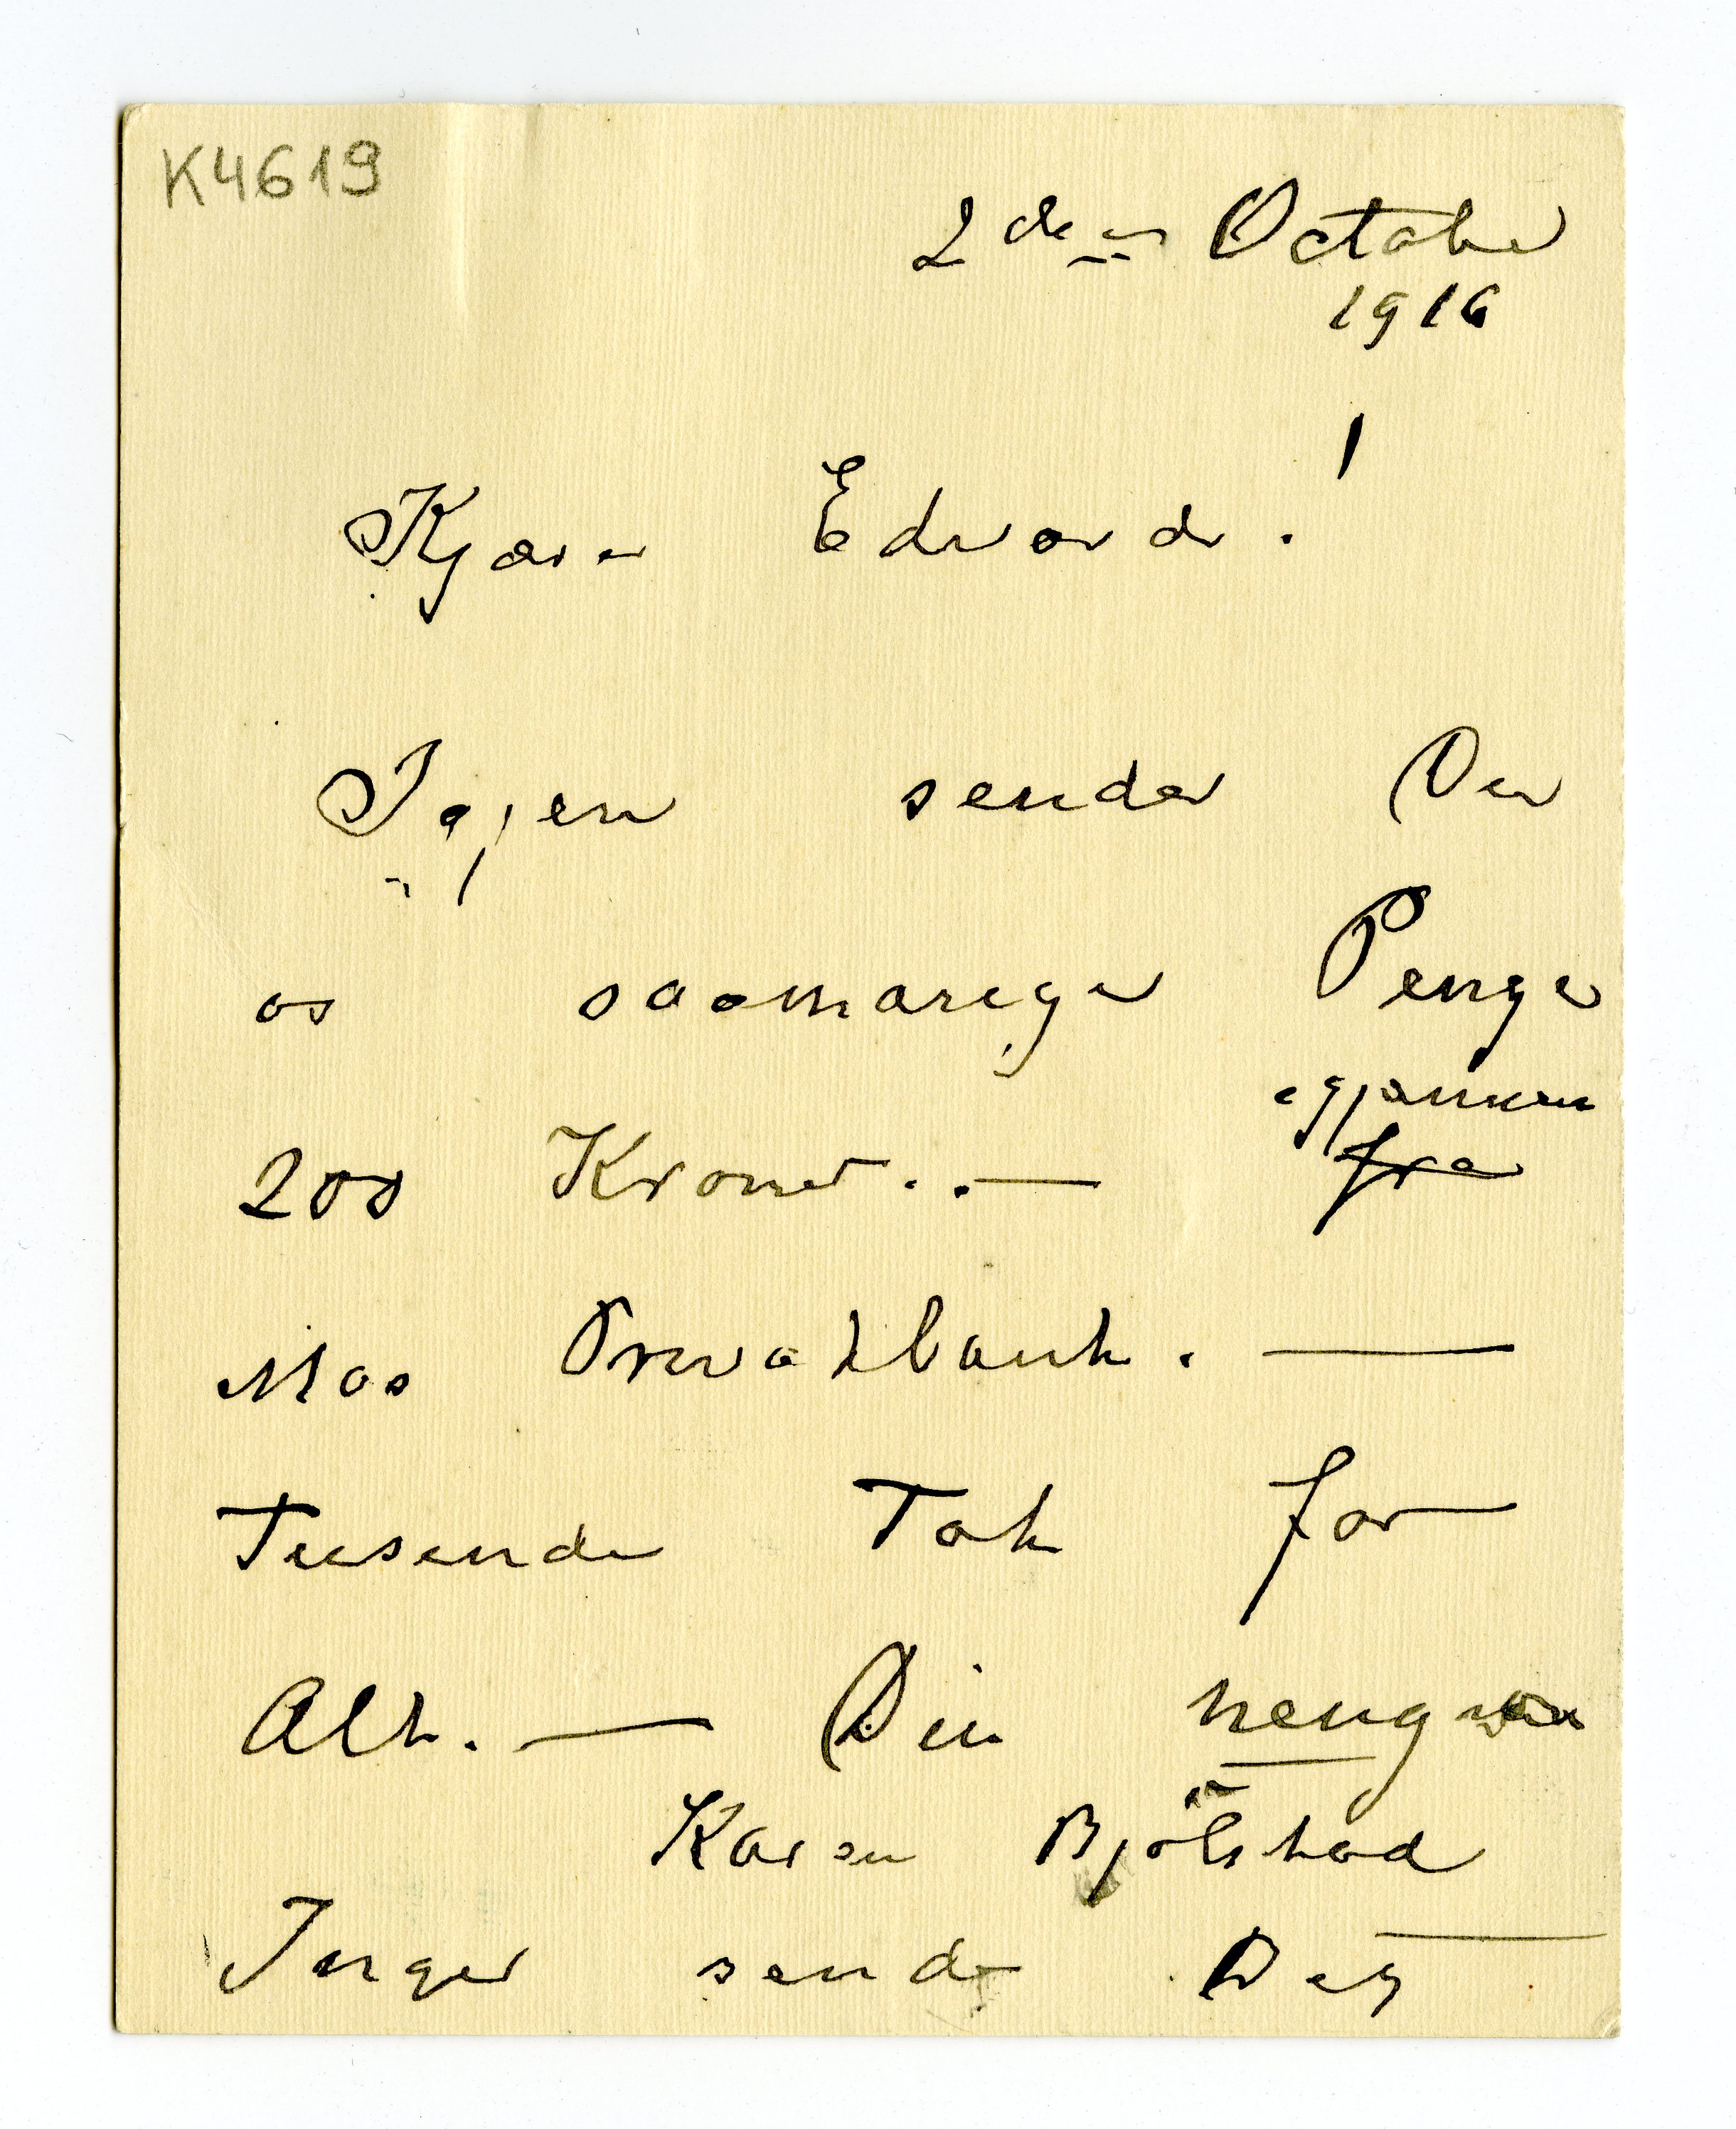 K4619
2den October
1916
Kjære Edvard!
Igjen sender Du
os saamange Penge
200 Kroner. . — igjennem
fra
Mos Privatbank. —
Tusende Tak for
Alt. — Din heng
Karen Bjölstad
Inger send Dig